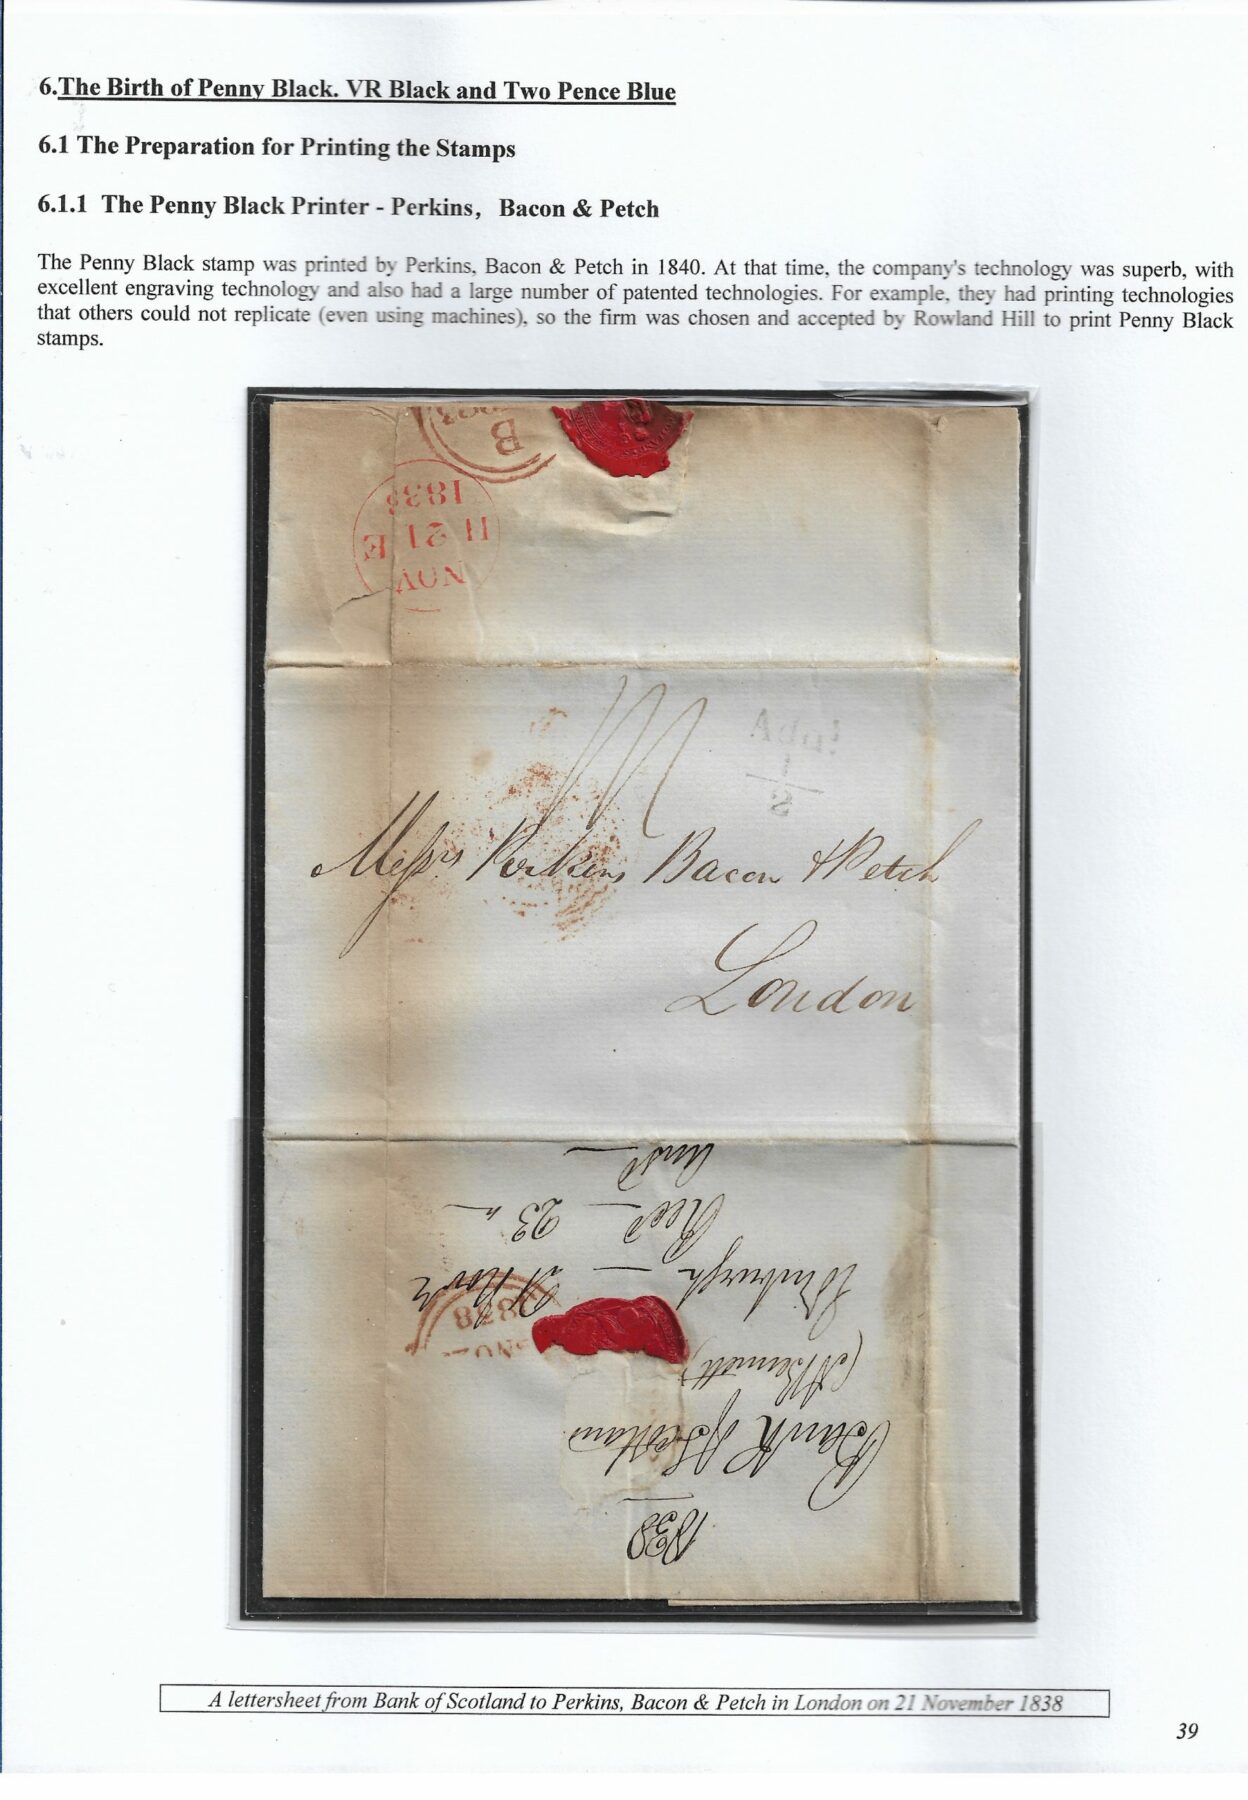 6.The Birth of Penny Black. VR Black and Two Pence Blue
6.1 The Preparation for Printing the Stamps
6.1.1 The Penny Black Printer - Perkins, Bacon & Petch
The Penny Black stamp was printed by Perkins, Bacon & Petch in 1840. At that time, the company's technology was superb, with
excellent engraving technology and also had a large number of patented technologies. For example, they had printing technologies
that others could not replicate (even using machines), so the firm was chosen and accepted by Rowland Hill to print Penny Black
stamps.
B
NOV
H 21 E
1838
Messrs Perkins Bacon & Petch
London
1838
Bank of Scotland
(A Bennett)
Edinburgh — 21 Novr
Recd — 23 "
Ansd —
1838
A lettersheet from Bank of Scotland to Perkins, Bacon & Petch in London on 21 November 1838
39